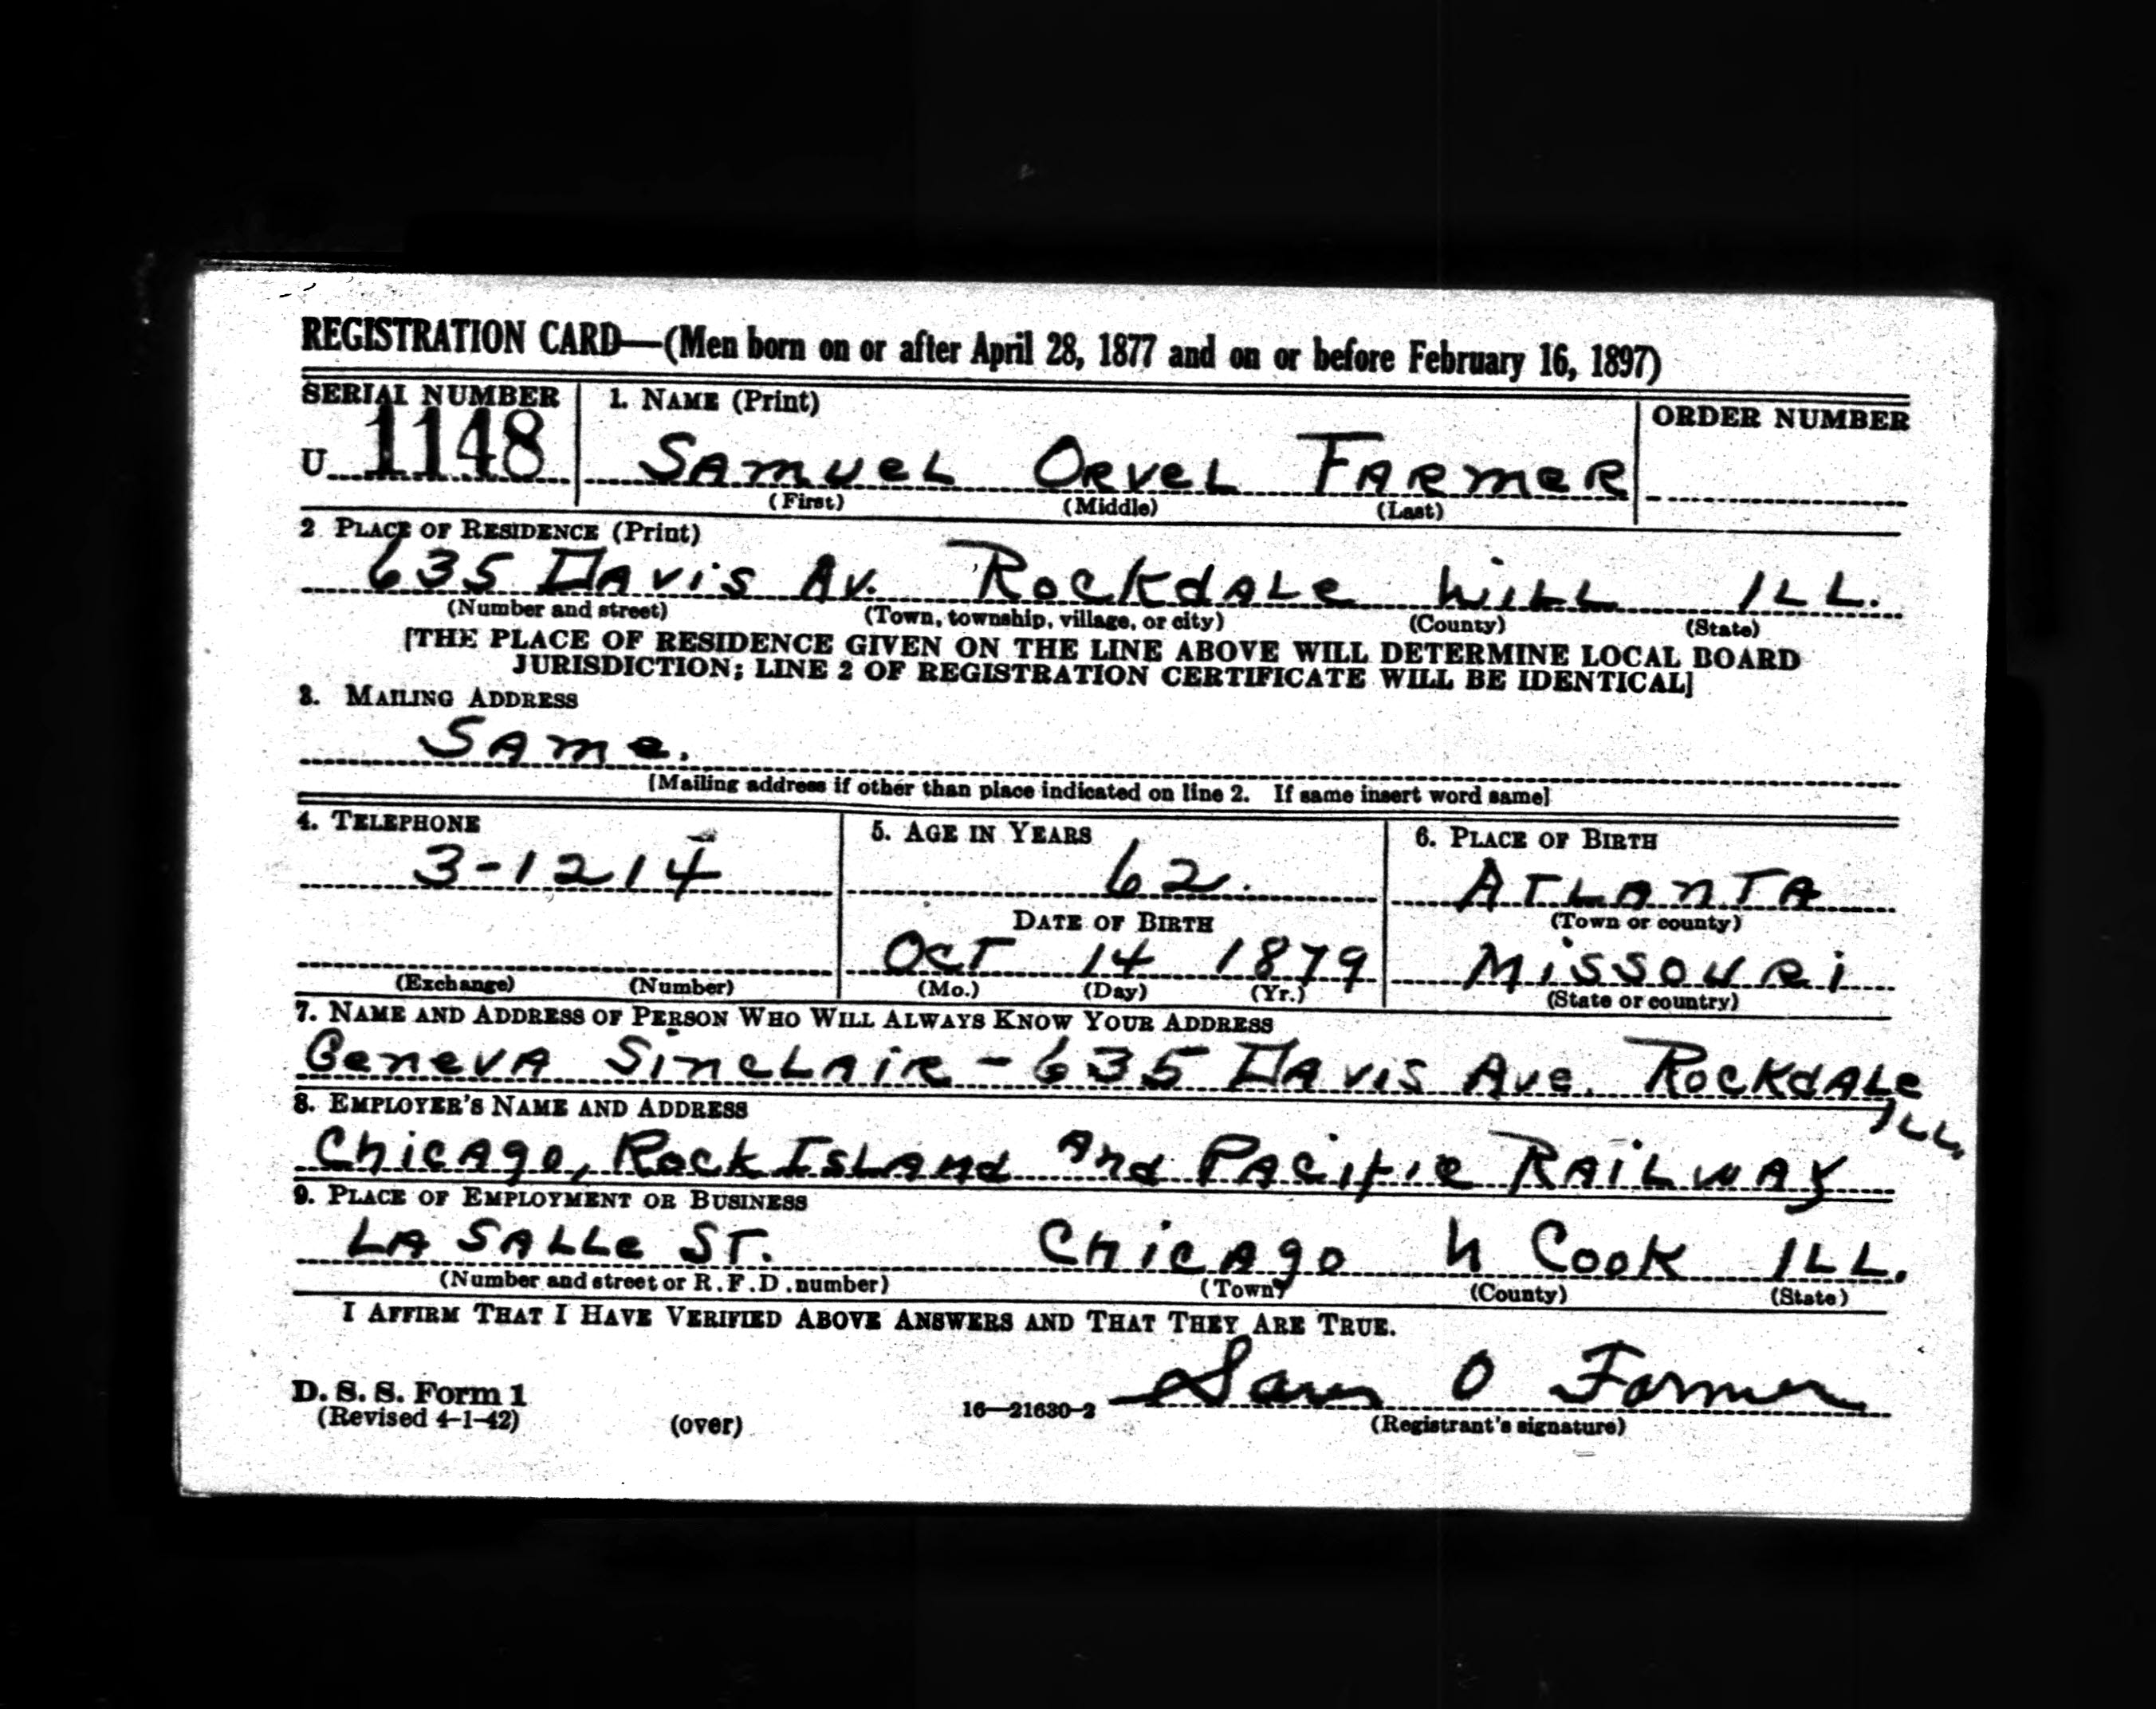 REGISTRATION CARD—(Men born on or after April 28, 1877 and on or before February 16, 1897)
SERIAL NUMBER 1. NAME (Print) ORDER NUMBER
U 1148 SAMUEL ORVEL FARMER
(First) (Middle) (Last)
2 PLACE OF RESIDENCE (Print)
635 DAVIS AV. ROCKDALE WILL ILL.
(Number and street) (Town, township, village, or city) (County) (State)
[THE PLACE OF RESIDENCE GIVEN ON THE LINE ABOVE WILL DETERMINE LOCAL BOARD
JURISDICTION; LINE 2 OF REGISTRATION CERTIFICATE WILL BE IDENTICAL]
3. MAILING ADDRESS
SAME.
[Mailing address if other than place indicated on line 2. If same insert word same]
4. TELEPHONE 5. AGE IN YEARS 6. PLACE OF BIRTH
3-1214 62. ATLANTA
DATE OF BIRTH (Town or county)
OCT 14 1879 MISSOURI
(Exchange) (Number) (Mo.) (Day) (Yr.) (State or country)
7. NAME AND ADDRESS OF PERSON WHO WILL ALWAYS KNOW YOUR ADDRESS
GENEVA SINCLAIR - 635 DAVIS AVE. ROCKDALE
ILL.
8. EMPLOYER'S NAME AND ADDRESS
CHICAGO, ROCK ISLAND AND PACIFIC RAILWAY
9. PLACE OF EMPLOYMENT OR BUSINESS
LA SALLE ST. CHICAGO COOK ILL.
(Number and street or R.F.D. number) (Town) (County) (State)
I AFFIRM THAT I HAVE VERIFIED ABOVE ANSWERS AND THAT THEY ARE TRUE.
Sam O Farmer
D. S. S. Form 1
(Revised 4-1-42) (over) 16—21630-2 (Registrant's signature)